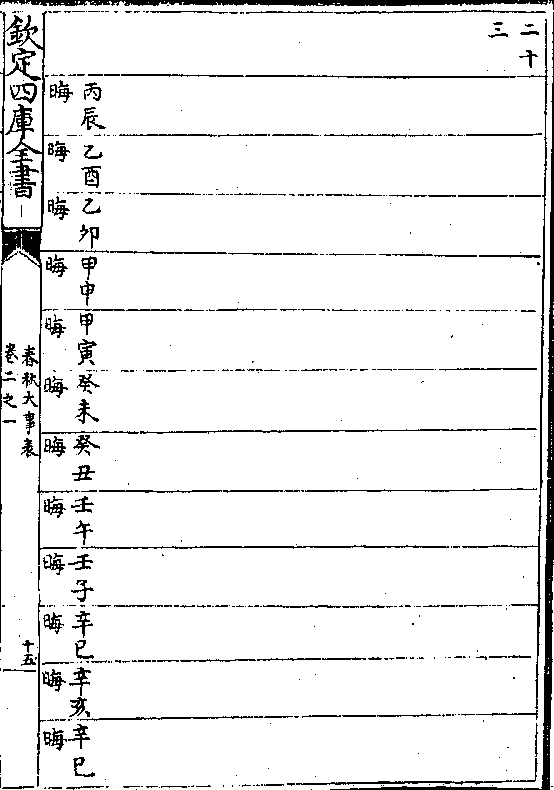 二十
三
丙辰
晦
乙酉
晦
乙卯
晦
甲申
晦
甲寅
晦
癸未
晦
癸丑
晦
壬午
晦
壬子
晦
辛巳
晦
辛亥
晦
辛巳
晦
欽定四庫全書
春秋大事表
卷二之一
十五